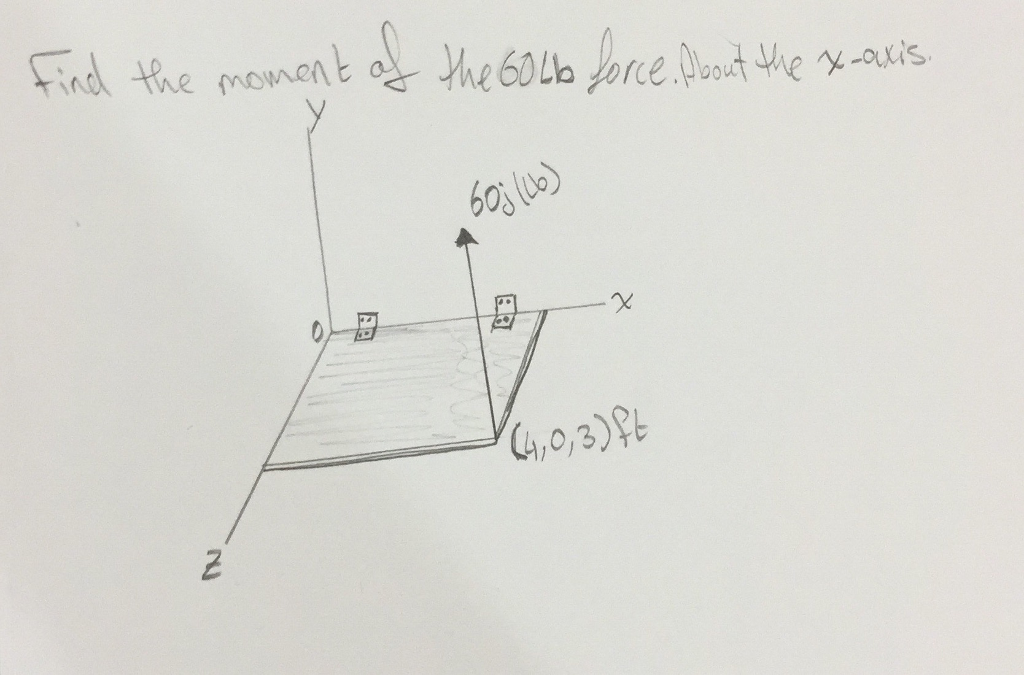 Find the moment of the 60Lb force. About the x-axis.
y
60j(Lb)
x
0
(4,0,3)ft
Z